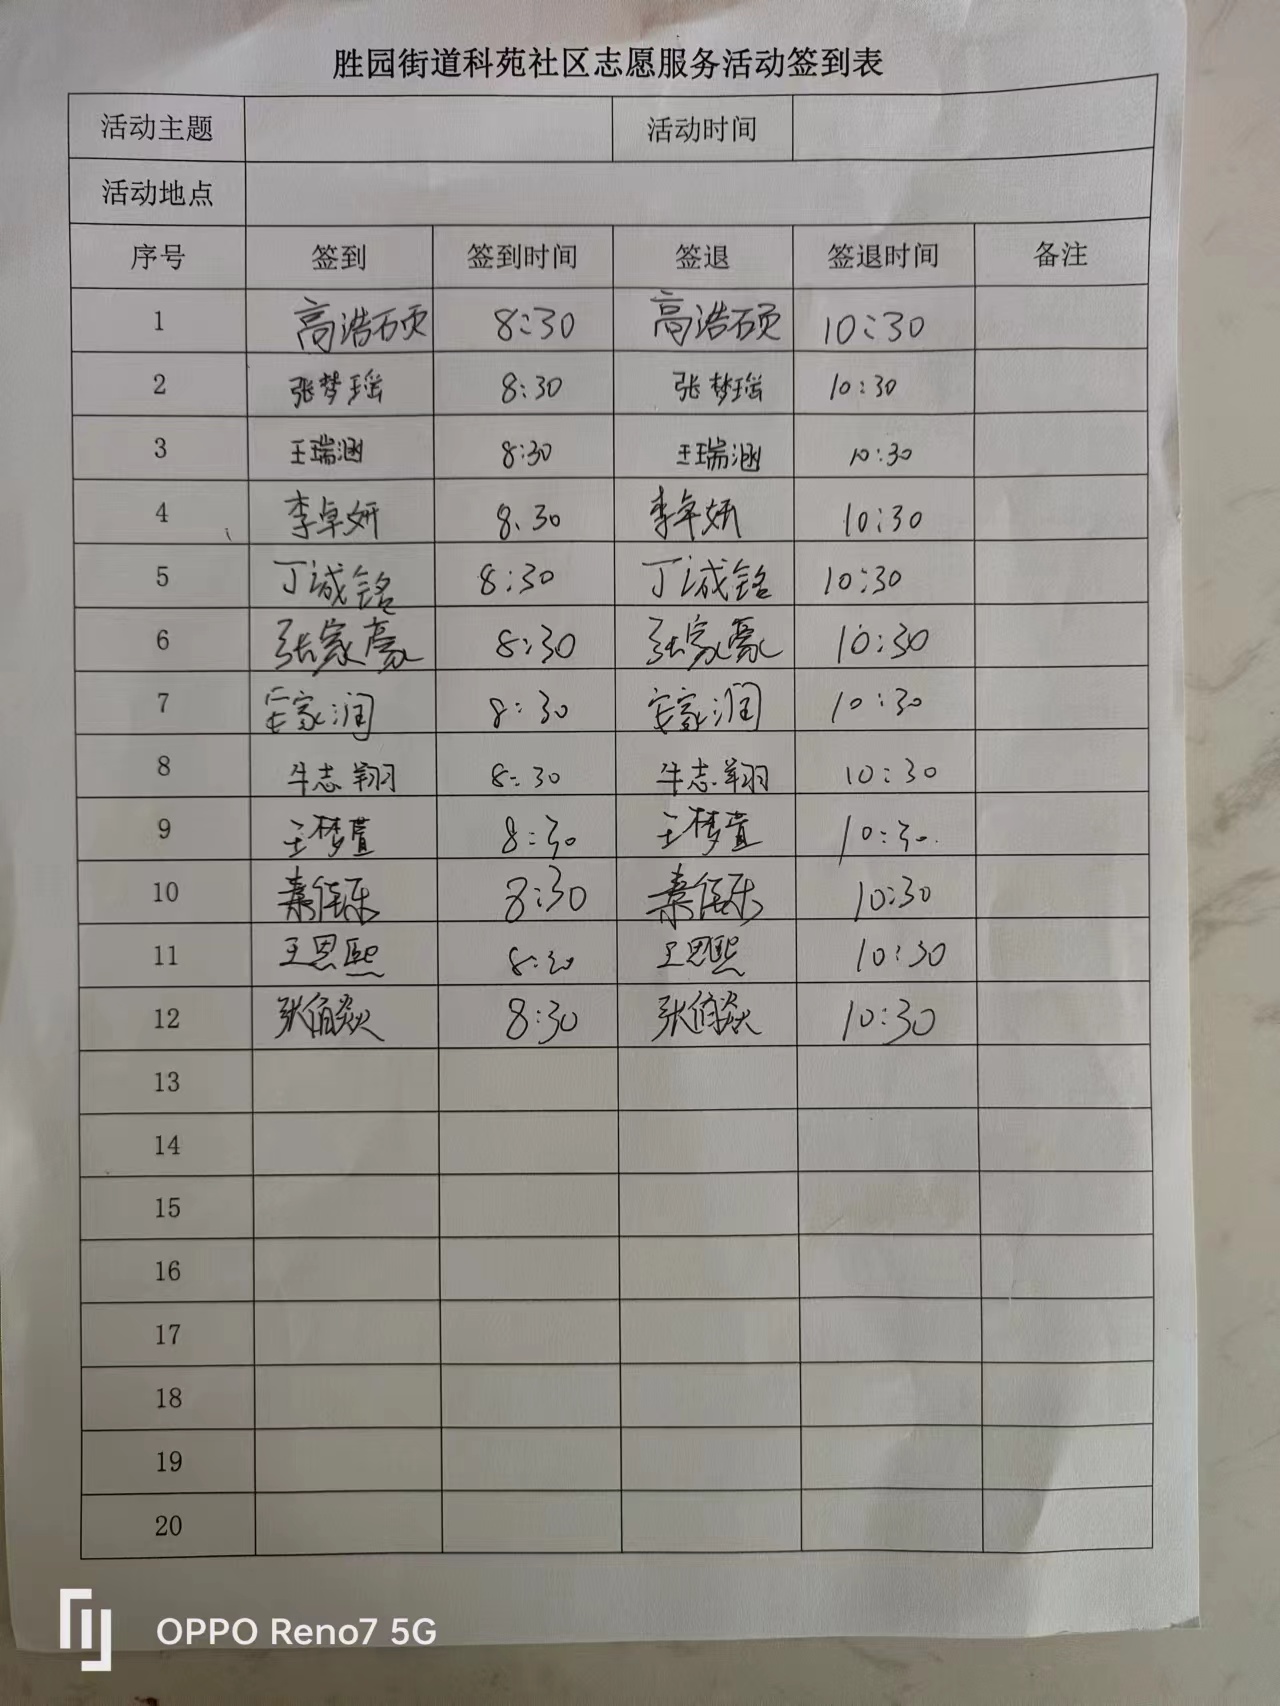 胜园街道科苑社区志愿服务活动签到表
活动主题 活动时间
活动地点
序号 签到 签到时间 签退 签退时间 备注
1 高浩硕 8:30 高浩硕 10:30
2 张梦瑶 8:30 张梦瑶 10:30
3 王瑞涵 8:30 王瑞涵 10:30
4 李卓妍 8.30 李卓妍 10:30
5 丁诚铭 8:30 丁诚铭 10:30
6 张家豪 8:30 张家豪 10:30
7 安家润 8:30 安家润 10:30
8 牛志翔 8:30 牛志翔 10:30
9 王梦萱 8:30 王梦萱 10:30
10 秦佳乐 8:30 秦佳乐 10:30
11 王恩熙 8:30 王恩熙 10:30
12 8:30 10:30
13
14
15
16
17
18
19
20
OPPO Reno7 5G